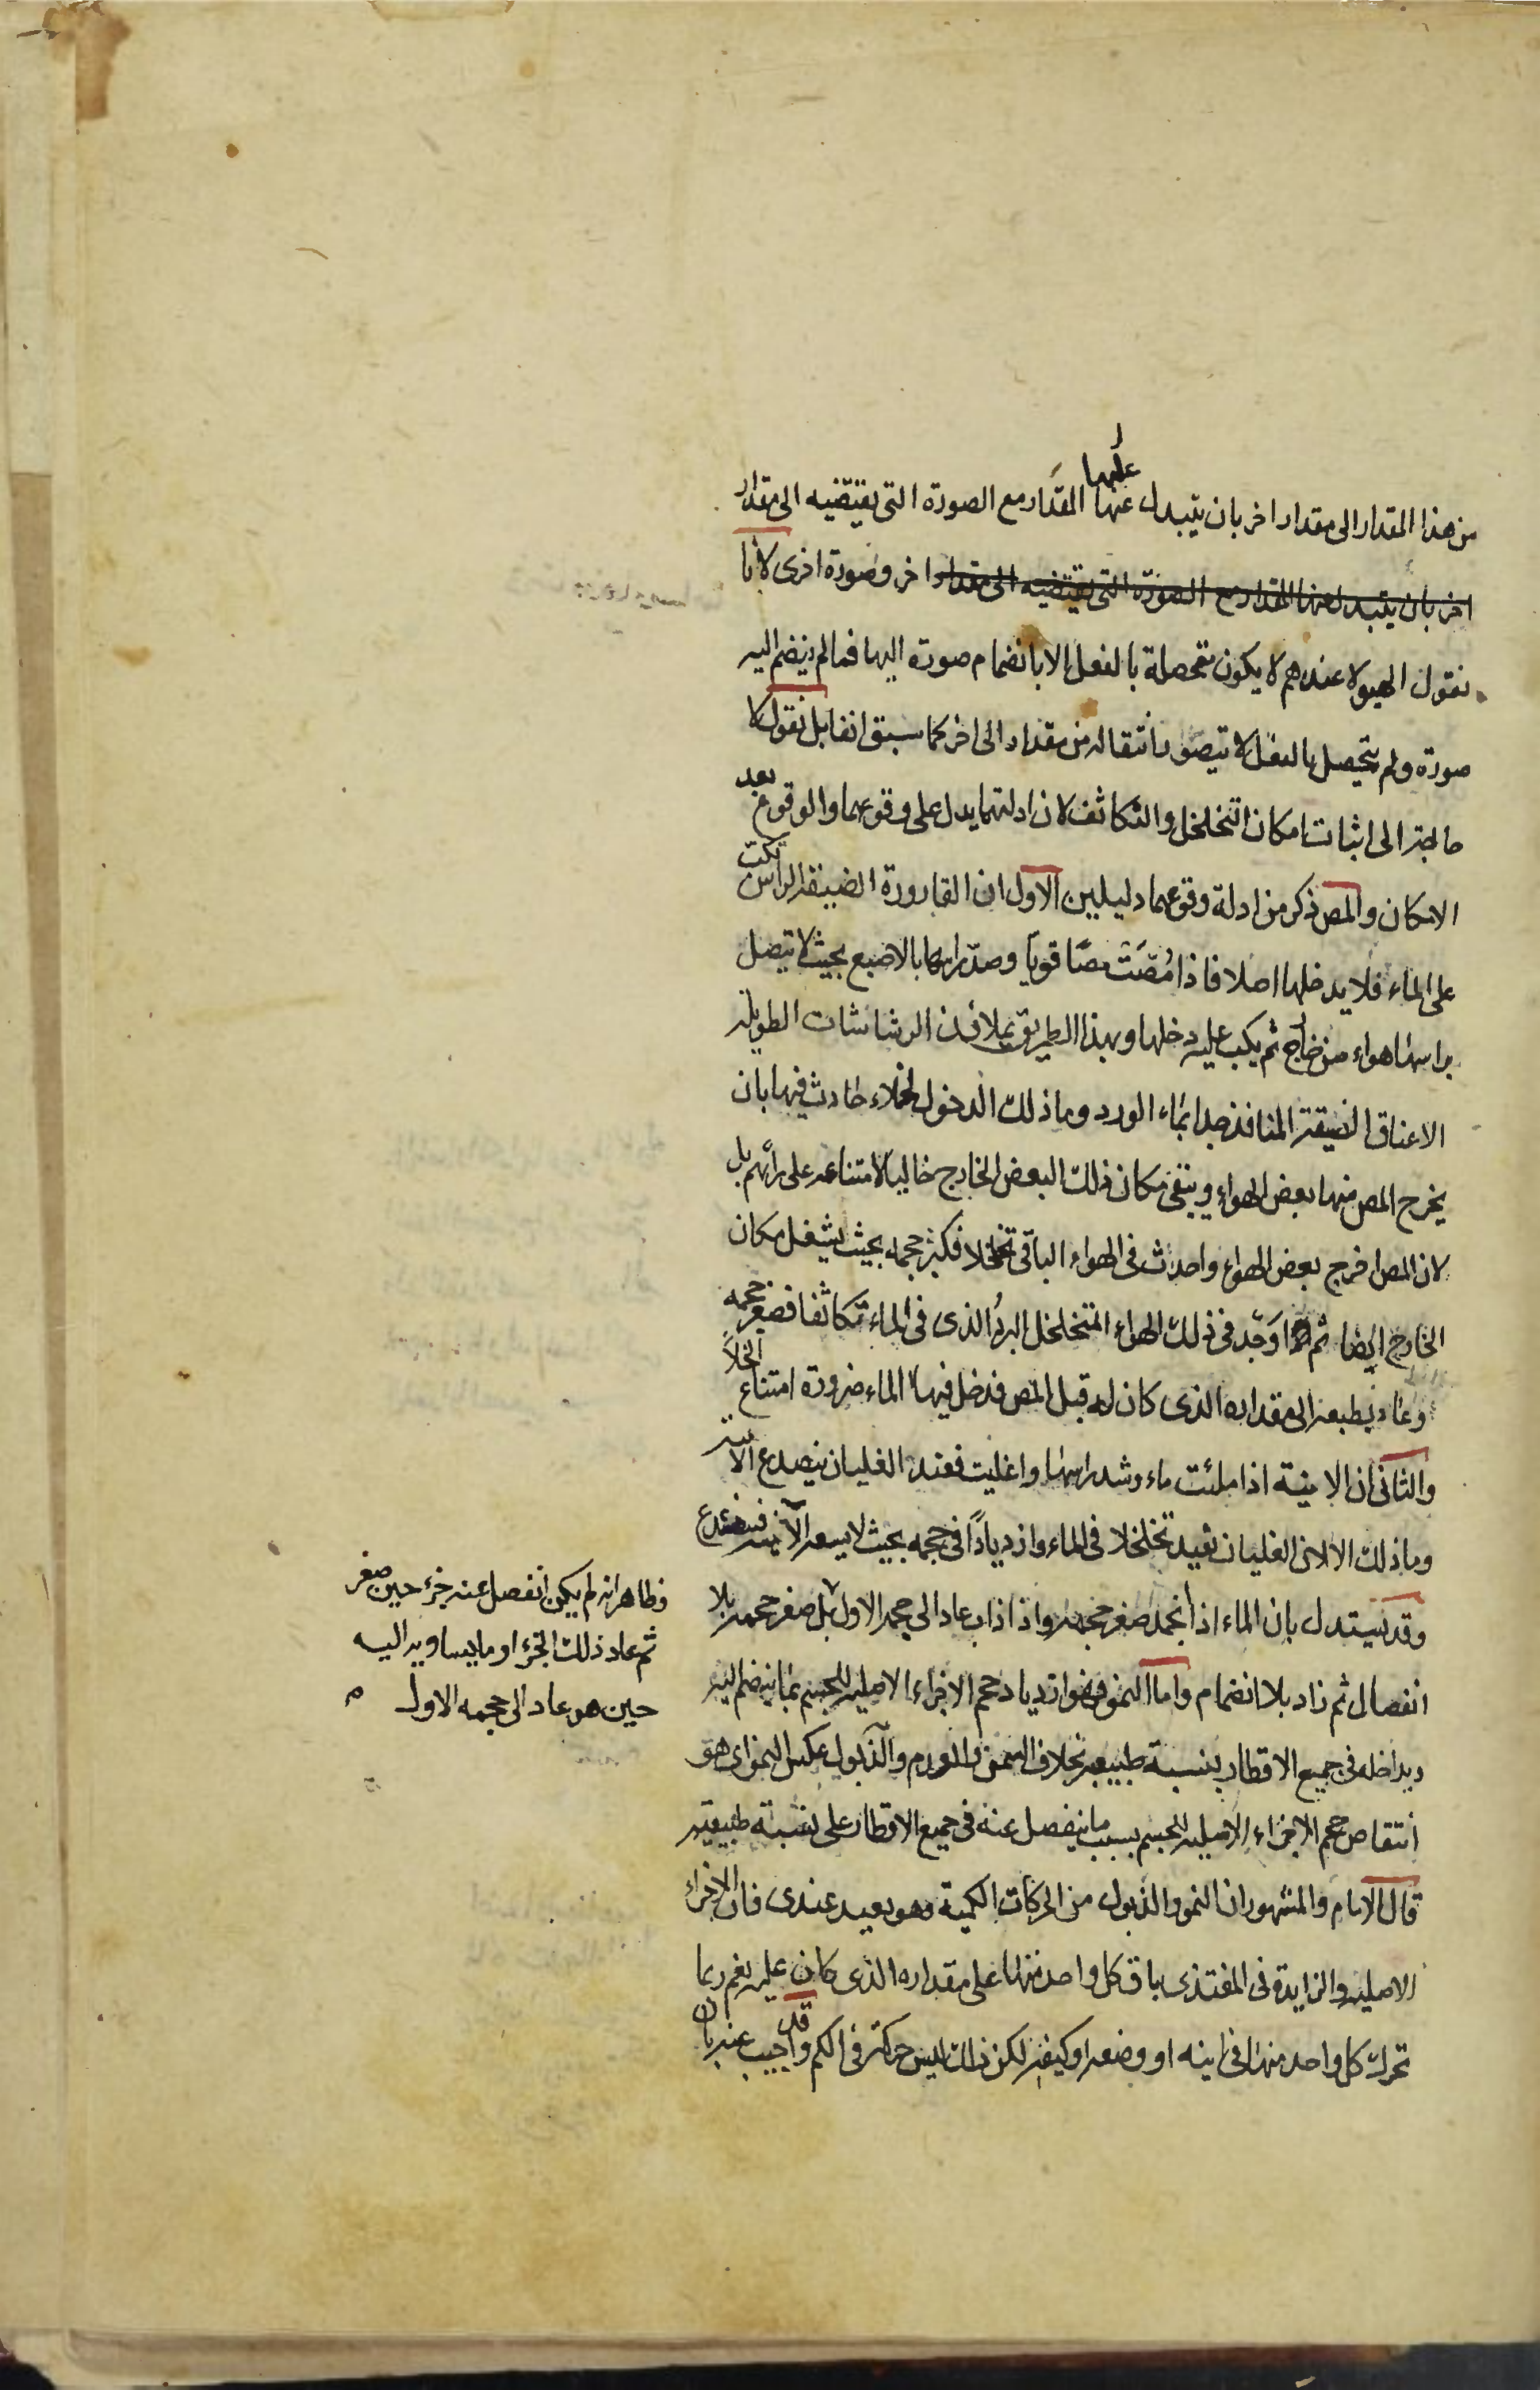 من هذا المقدار الى مقدار اخر بان يتبدل عنها عليها المقدار مع الصورة التى يقتضيه الى مقدار
اخر بان يتبدل عنها المقدار مع الصورة التى يقتضيه الى مقدار اخر وصورة اخرى لانا
نقول الهيولا عندهم لا يكون متحصلة بالفعل الا بانضمام صورة اليها فمالم ينضم اليه
صورة ولم يتحصل بالفعل لا يتصور انتقاله من مقدار الى اخر كما سبق انفا بل نقول لا
حاجة الى اثبات امكان التخلخل والتكاثف لان ادلتهما يدل على وقوعهما والوقوع بعد
الامكان والمص ذكر من ادلة وقوعهما دليلين الاول ان القارورة الضيقة الراس تكب
على الماء فلا يدخلها اصلا فاذا مُصّت مصّا قويا وصدّ راسها بالاصبع بحيث لا يتصل
براسها هواء من خارج ثم يكب عليه دخلها وبهذا الطريق يملاؤن الرشاشات الطويلة
الاعناق الضيقة المنافذ جدا بماء الورد وما ذلك الدخول لخلاء حادث فيها بان
يخرج المص منها بعض الهواء ويبقى مكان ذلك البعض الخارج خاليا لامتناعه على رائهم بل
لان المص اخرج بعض الهواء واحدث فى الهواء الباقى تخلخلا فكبر حجمه بحيث يشغل مكان
الخارج ايضا ثم اوجد فى ذلك الهواء المتخلخل البردُ الذى فى الماء تكاثفا فصغر حجمه
وعاد بطبعه الى مقداره الذى كان له قبل المص فدخل فيها الماء ضرورة امتناع الخلأ
والثانى ان الانية اذا ملئت ماء وشد راسها واغليت فعند الغليان ينصدع الآنية
وما ذلك الا لان الغليان يفيد تخلخلا فى الماء وازديادًا فى حجمه بحيث لا يسعه الآنية فينصدع
وقد يستدل بان الماء اذا انجمد صغر حجمه واذا ذاب عاد الى حجمه الاول بل صغر حجمه بلا
انفصال ثم زاد بلا انضمام واما النمو فهو ازدياد حجم الاجزاء الاصلية للجسم بما ينضم اليه
ويداخله فى جميع الاقطار بنسبة طبيعية بخلاف السمن والورم والذبول عكس النمو اى هو
انتقاص حجم الاجزاء الاصلية للجسم بسبب ما ينفصل عنه فى جميع الاقطار على نسبة طبيعية
قال الامام والمشهور ان النمو والذبول من الحركات الكمية وهو بعيد عندى فان الاجزاء
الاصلية والزايدة فى المغتذى باق كل واحد منها على مقداره الذى كان عليه نعم ربما
تحرك كل واحد منها فى اينه او وضعه او كيفه لكن ذلك ليس حركة فى الكم وقد اجيب عنه بان
وظاهر انه لم يكن انفصل عنه جزء حين صغر
ثم عاد ذلك الجزء او ما يساويه اليه
حين هو عاد الى حجمه الاول